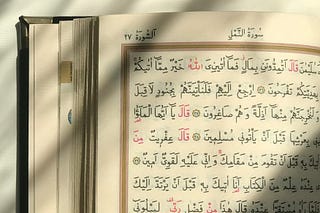 سُورَةُ النَّمْلِ السُّورَة ٢٧
قَالَ أَتُمِدُّونَنِ بِمَالٍ فَمَا آتَىٰنِيَ اللَّهُ خَيْرٌ مِمَّا آتَىٰكُمْ
بِهَدِيَّتِكُمْ تَفْرَحُونَ ارْجِعْ إِلَيْهِمْ فَلَنَأْتِيَنَّهُمْ بِجُنُودٍ لَا قِبَلَ
وَلَنُخْرِجَنَّهُمْ مِنْهَا أَذِلَّةً وَهُمْ صَاغِرُونَ قَالَ يَا أَيُّهَا الْمَلَؤُا
بِعَرْشِهَا قَبْلَ أَنْ يَأْتُونِي مُسْلِمِينَ قَالَ عِفْرِيتٌ مِنَ
بِهِ قَبْلَ أَنْ تَقُومَ مِنْ مَقَامِكَ وَإِنِّي عَلَيْهِ لَقَوِيٌّ أَمِينٌ
عِنْدَهُ عِلْمٌ مِنَ الْكِتَابِ أَنَا آتِيكَ بِهِ قَبْلَ أَنْ يَرْتَدَّ إِلَيْكَ
مُسْتَقِرًّا عِنْدَهُ قَالَ هَٰذَا مِنْ فَضْلِ رَبِّي لِيَبْلُوَنِي